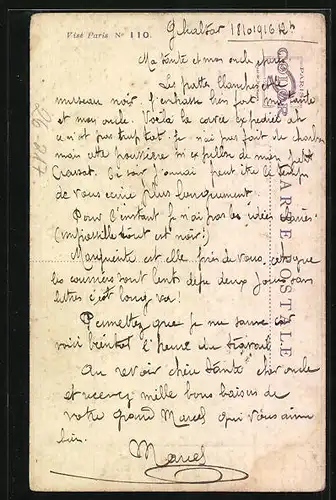 Visé Paris. N° 110.
Gibraltar 18 10 1916 12h
Ma tante et mon oncle
Les pattes blanches et
museau noir. J'embrasse bien fort ma tante
et mon oncle. Voilà la corvée expédiée ah
ce n'est pas trop tôt. Je n'ai pas fait de charbon
mais cette poussière
Ce soir j'aurai peut être le temps
de vous écrire plus longuement.
Pour l'instant je n'ai pas les idées claires
(impossible tout est noir!)
Marguerite est elle près de vous,
les courriers sont lents deux jours sans
lettres c'est long va!
Permettez que je me sauve car
voici bientôt l'heure du travail
Au revoir chère tante cher oncle
et recevez mille bons baisers de
votre grand Marcel qui vous aime
bien.
Marcel
CARTE POSTALE